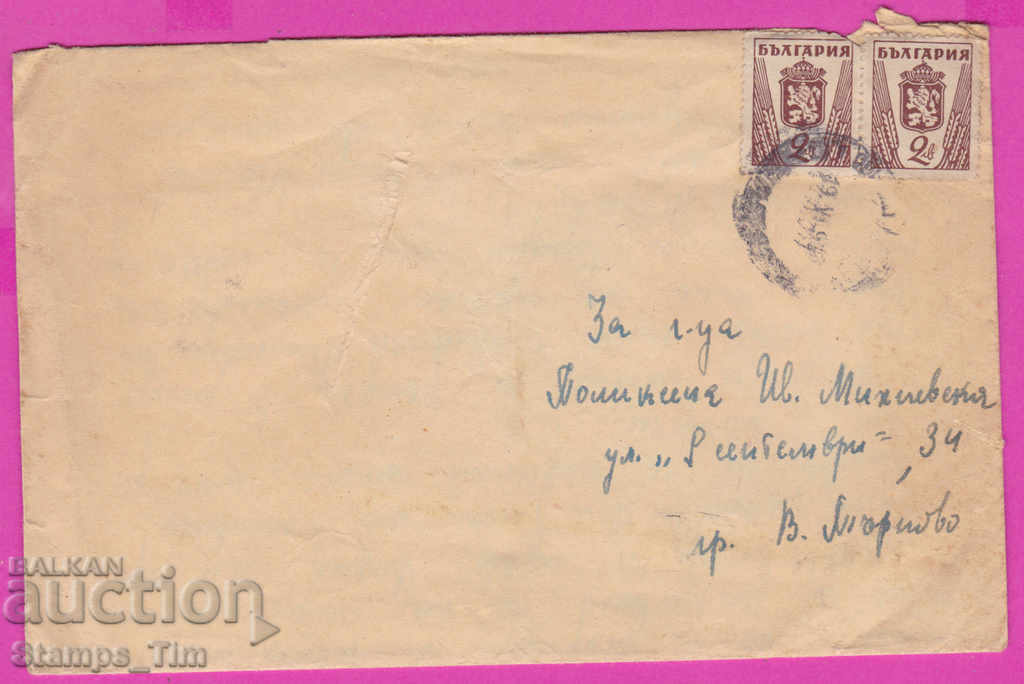 БЪЛГАРИЯ БЪЛГАРИЯ
2 лв 2 лв
За г-ца
Поликсена Ив. Михлевска
ул. „9 септември“ 34
гр. В. Търново
BALKAN
auction
Stamps_Tim